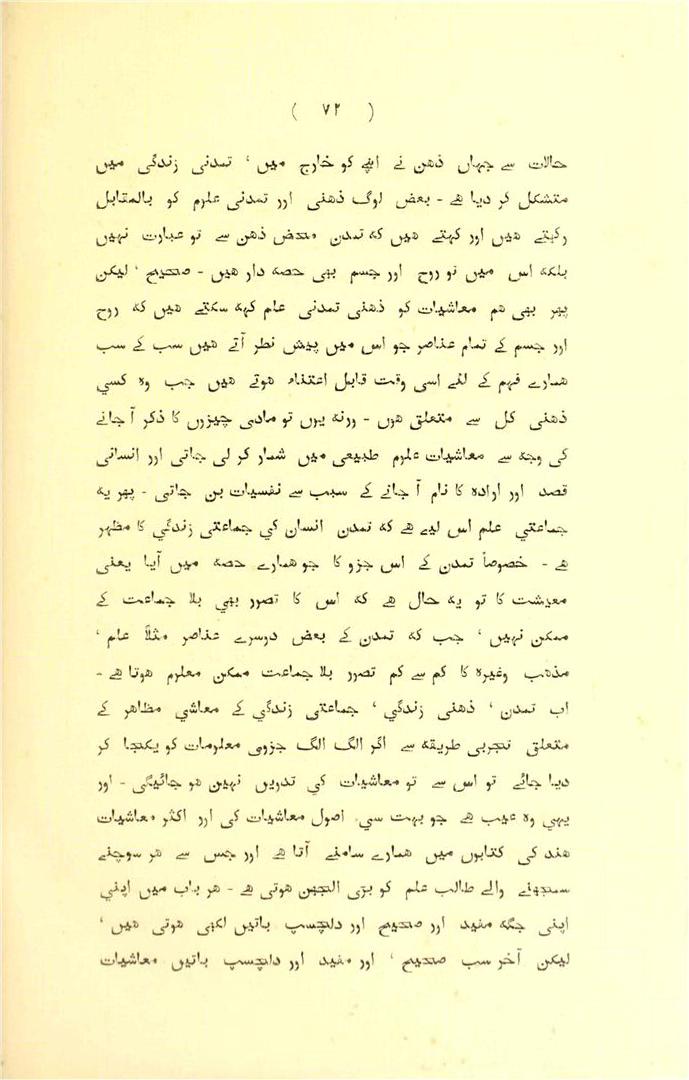 ( ۷۲ )
حالات سے جہاں ذهن نے اپنے کو خارج میں ، تمدنی زندگی میں
متشکل کر دیا هے - بعض لوگ ذهنی اور تمدنی علوم کو بالمقابل
رکھتے هیں اور کہتے هیں که تمدن محض ذهن سے تو عبارت نہیں
بلکه اس میں تو روح اور جسم بھی حصه دار هیں - صحیح ، لیکن
پھر بھی هم معاشیات کو ذهنی تمدنی علم کہه سکتے هیں که روح
اور جسم کے تمام عناصر جو اس میں پیش نظر آتے هیں سب کے سب
همارے فہم کے لئے اسی وقت قابل اعتناء هوتے هیں جب وه کسي
ذهنی کل سے متعلق هوں - ورنه یوں تو مادی چیزوں کا ذکر آ جانے
کی وجه سے معاشیات علوم طبیعی میں شمار کر لی جاتی اور انسانی
قصد اور اراده کا نام آ جانے کے سبب سے نفسیات بن جاتی - پھر یه
جماعتي علم اس لیے هے که تمدن انسان کي جماعتی زندگي کا مظہر
هے - خصوصاً تمدن کے اس جزو کا جو همارے حصه میں آیا یعنی
معیشت کا تو یه حال هے که اس کا تصور بھي بلا جماعت کے
ممکن نہیں ، جب که تمدن کے بعض دوسرے عناصر مثلاً علم ،
مذهب وغیره کا کم سے کم تصور بلا جماعت ممکن معلوم هوتا هے -
اب تمدن ، ذهنی زندگي ، جماعتی زندگي کے معاشي مظاهر کے
متعلق تجربی طریقه سے اگر الگ الگ جزوی معلومات کو یکجا کر
دیا جائے تو اس سے تو معاشیات کي تدوین نہیں هو جائیگی - اور
یہي وه عیب هے جو بہت سی اصول معاشیات کی اور اکثر معاشیات
هند کی کتابوں میں همارے سامنے آتا هے اور جس سے هر سوچنے
سمجھنے والے طالب علم کو بڑی الجھن هوتی هے - هر باب میں اپني
اپنی جگه مفید اور صحیح اور دلچسپ باتیں لکھی هوتی هیں ،
لیکن آخر سب صحیح ، اور مفید اور دلچسپ باتیں معاشیات